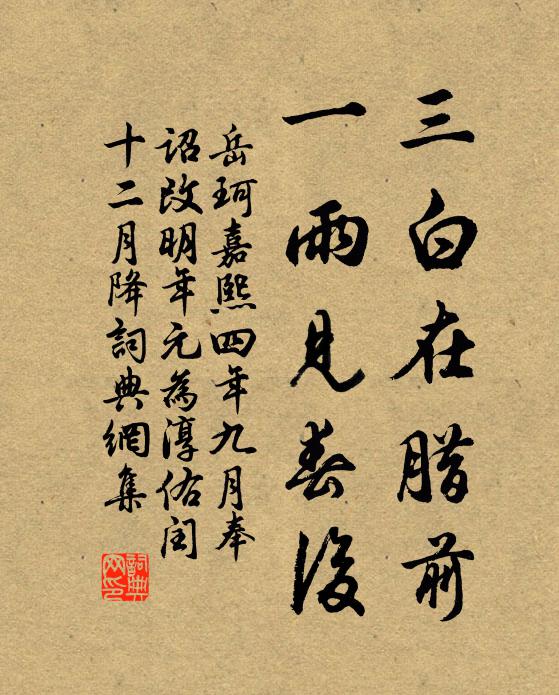 三白在腊前
一雨見春後
岳珂嘉熙四年九月奉
詔改明年元為淳佑闰
十二月降詞典網集
詞典网印